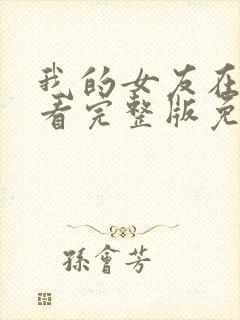 我的女友在
看完整版免
孫會芳